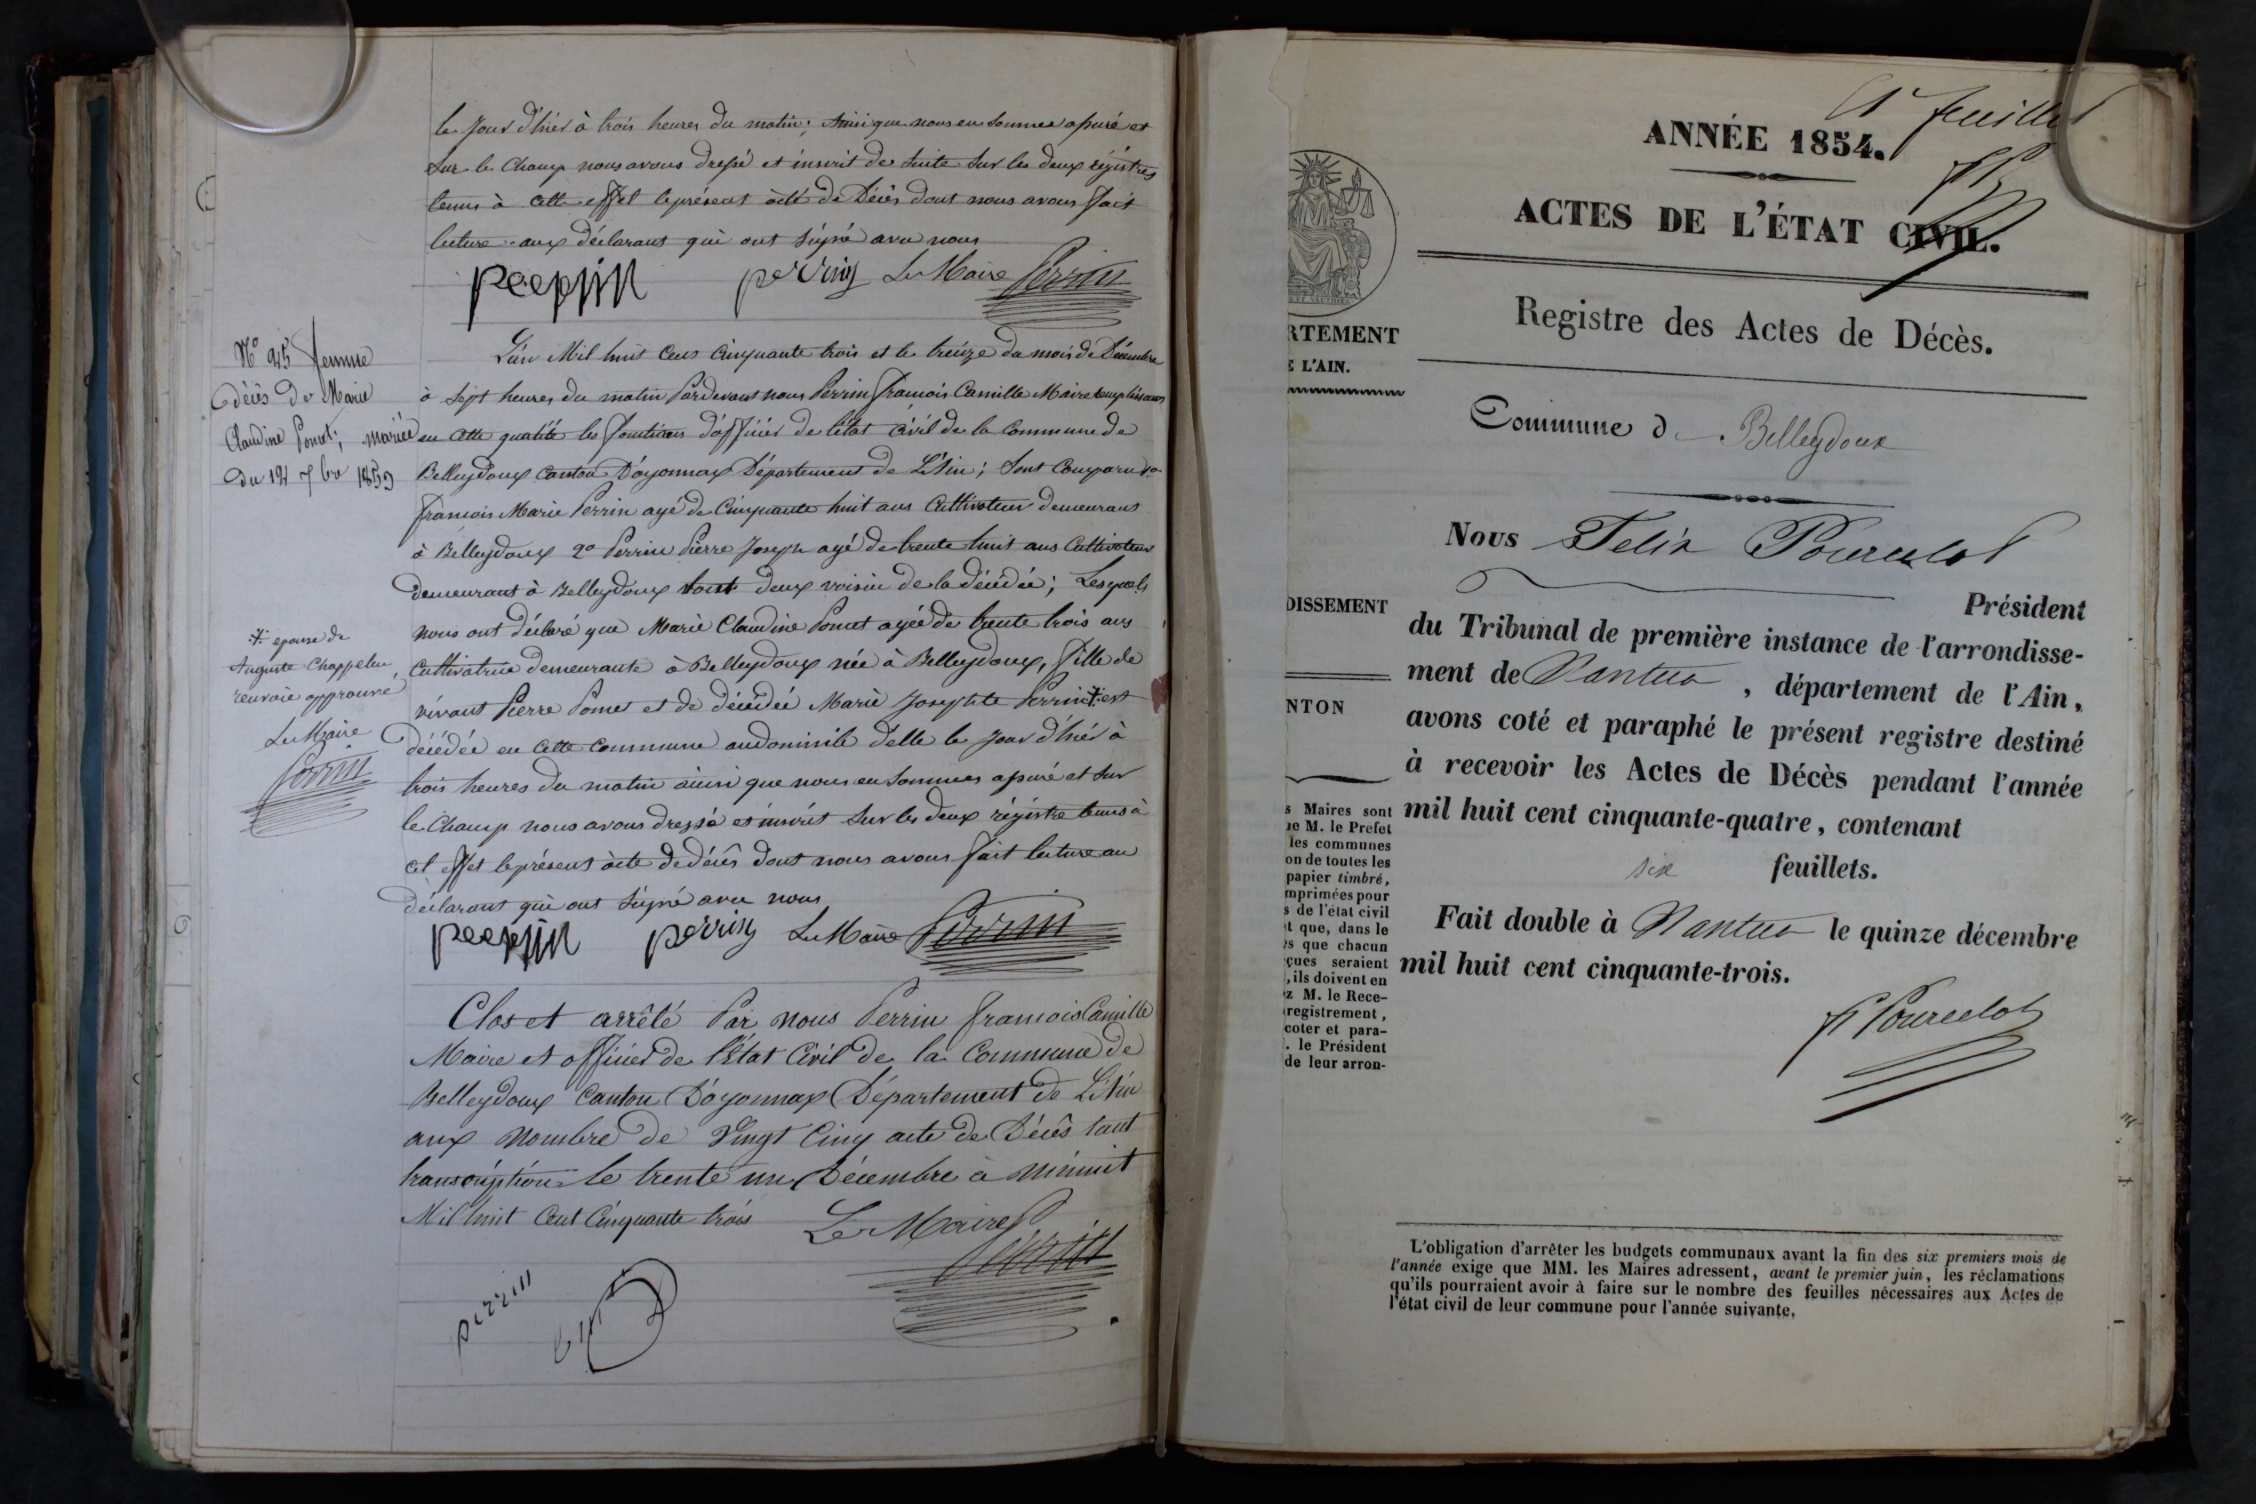 le jour d'hiér à trois heures du matin; Ainsi que nous en sommes assuré et
sur le champ nous avons dressé et inscrit de suite sur les deux régistres
tenus à cette effet le présent acte de Décès dont nous avons fait
lecture aux déclarant qui ont signé avec nous
perrin Le Maire Perrin
N° 25 femme
décès de Marie
Claudine Pomet; mariée
du 12 Xbre 1853
L'an Mil huit cens cinquante trois et le treize du mois de Décembre
à sept heures du matin Pardevant nous Perrin françois Camille Maire remplissans
en cette qualité les fonctions d'officier de l'état civil de la Commune de
Belleydoux Canton D'oyonnax Département de L'Ain; Sont Comparu 1°
françois Marie Perrin agé de Cinquante huit ans Cultivateur demeurans
à Belleydoux 2° Perrin Pierre Joseph agé de trente huit ans Cultivateur
demeurant à Belleydoux tous deux voisin de la décédée; Lesquels
nous ont déclaré que Marie Claudine Pomet agée de trente trois ans
Cultivatrice demeurante à Belleydoux née à Belleydoux, fille de
vivant Pierre Pomet et de décédée Marie Josephte Perrin est
décédée en cette commune au domicile d'elle le jour d'hiér à
trois heures du matin ainsi que nous en sommes assuré et sur
le champ nous avons dressé et inscrit sur les deux régistre tenus à
cet effet le présent acte de décès dont nous avons fait lecture au
déclarant qui ont signé avec nous
épouse de
Auguste Chappelu,
renvoie approuvé
Le Maire
Perrin
perrin Le Maire Perrin
Clos et arrêté Par nous Perrin françois Camille
Maire et officier de l'État Civil de la Commune de
Belleydoux Canton D'oyonnax Département de L'Ain
aux nombre de Vingt Cinq acte de Décès tant
transcription le trente un Décembre à minuit
Mil huit Cent Cinquante trois Le Maire
Perrin
perrin
1er feuillet
ANNÉE 1854.
ACTES DE L'ÉTAT CIVIL.
Registre des Actes de Décès.
RTEMENT
E L'AIN.
Commune de Belleydoux
Nous Felix Pourcelot
DISSEMENT
Président
du Tribunal de première instance de l'arrondisse-
ment de Nantua, département de l'Ain,
NTON
avons coté et paraphé le présent registre destiné
à recevoir les Actes de Décès pendant l'année
mil huit cent cinquante-quatre, contenant
six feuillets.
Fait double à Nantua le quinze décembre
mil huit cent cinquante-trois.
F Pourcelot
s Maires sont
ue M. le Prefet
les communes
on de toutes les
papier timbré,
mprimées pour
s de l'état civil
t que, dans le
es que chacun
çues seraient
, ils doivent en
z M. le Rece-
registrement,
coter et para-
. le Président
de leur arron-
L'obligation d'arrêter les budgets communaux avant la fin des six premiers mois de
l'année exige que MM. les Maires adressent, avant le premier juin, les réclamations
qu'ils pourraient avoir à faire sur le nombre des feuilles nécessaires aux Actes de
l'état civil de leur commune pour l'année suivante.